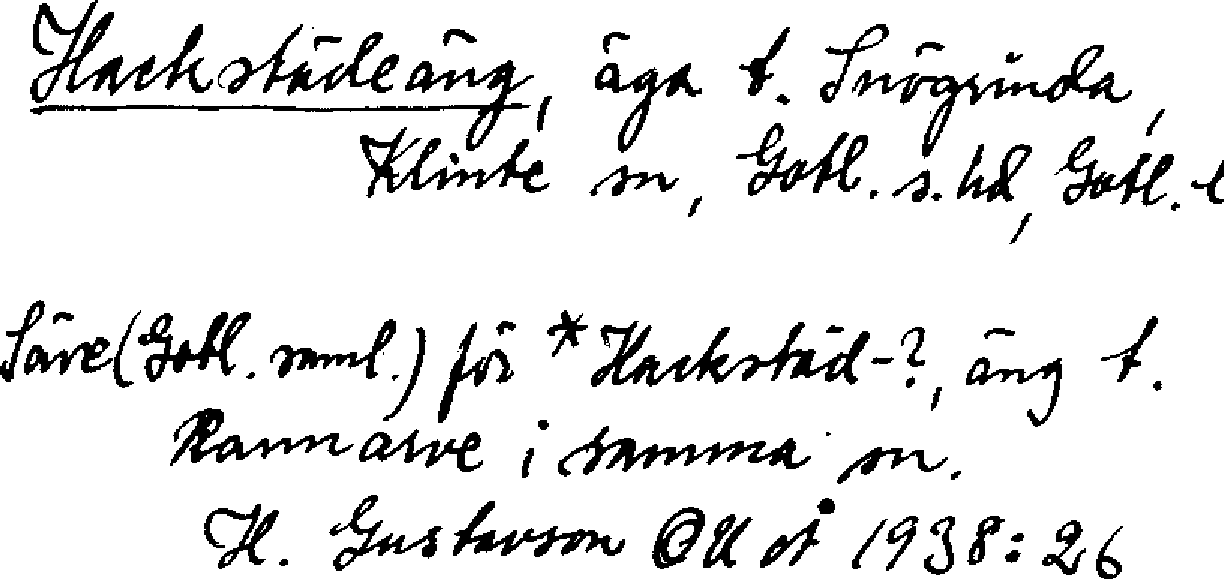 Hackstädeäng, äga t. Snögrinda,
Klinte sn, Gotl. s. hd, Gotl. l
Säve (Gotl. saml.) för *Hackstäd-?, äng t.
Rannarve i samma sn.
H. Gustavson OUÅ 1938: 26